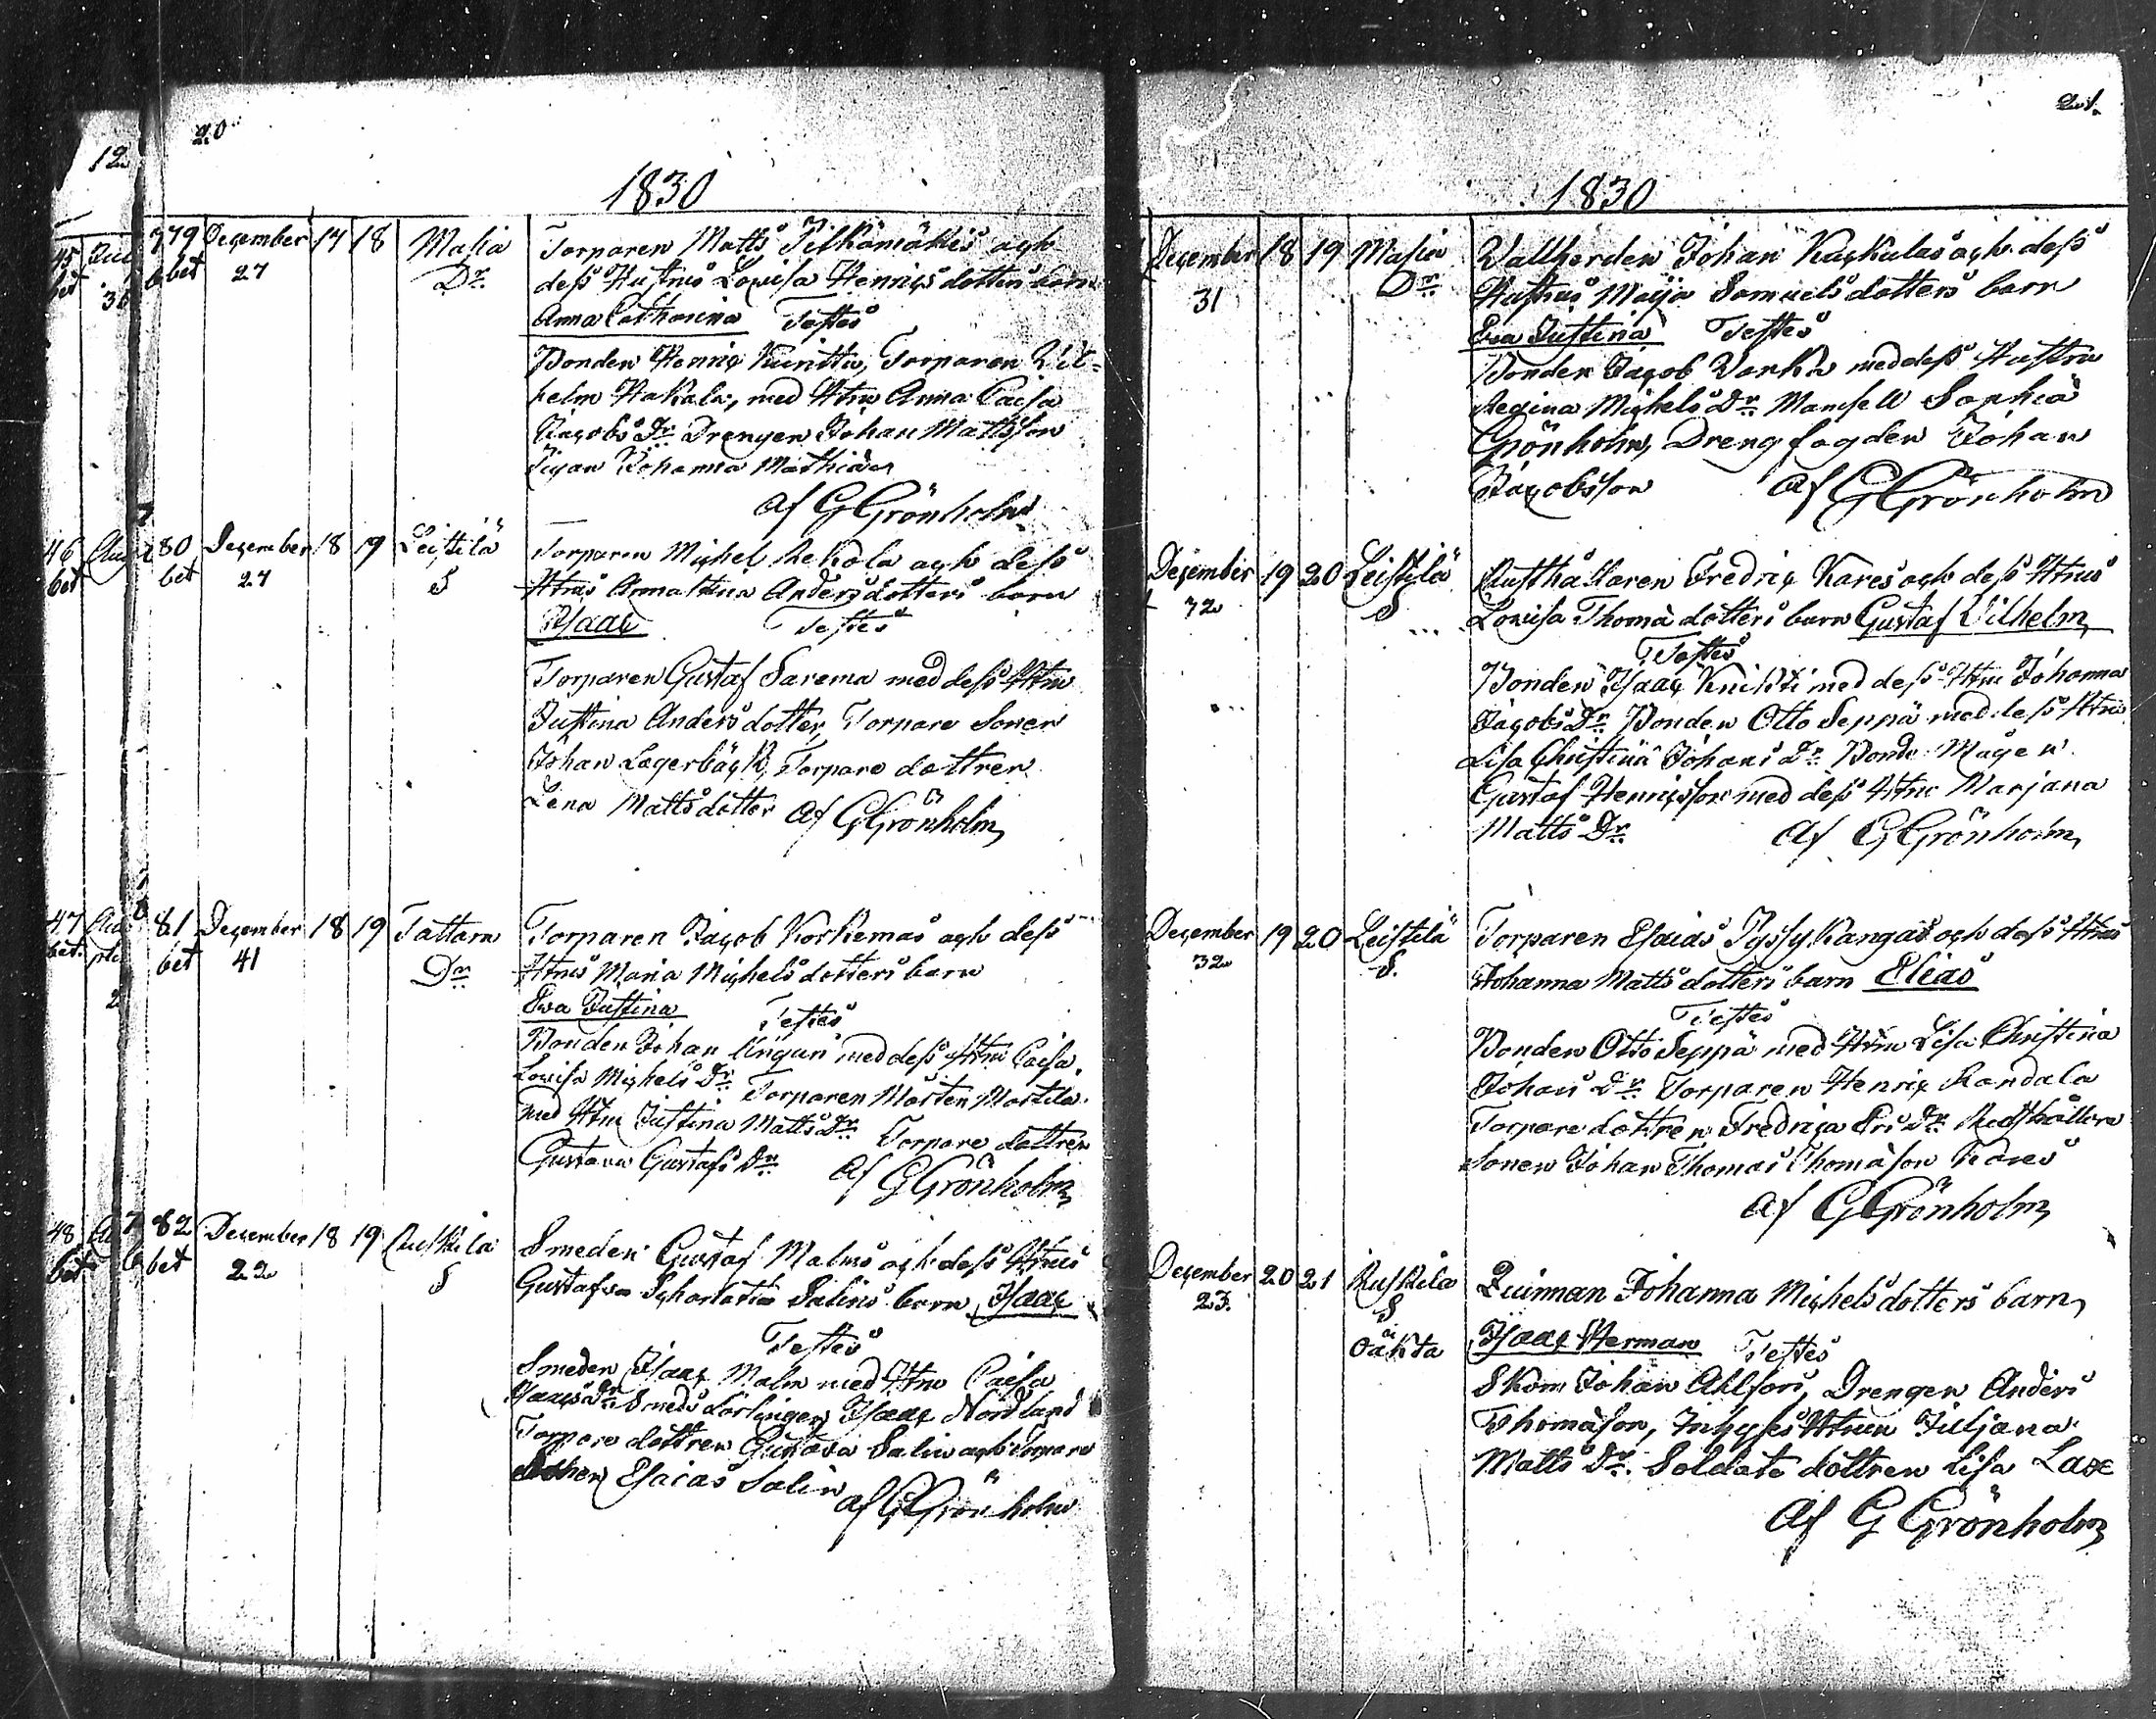 20
12
1830
45 Juli 79 December 17 18 Masia Torparen Matts Pitkämäkis och
bet 36 bet 27 Dr dess Hustrus Lovisa Henricsdotters barn
Anna Catharina Testes
Bonden Henric Kunittu, Torparen Wil-
helm Hakala, med Htru Anna Caisa
Jacobs Dr Drengen Johan Mattsson
Pigan Johanna Mathiæ
af G Grönholm
46 80 December 18 19 Leistilä Torparen Michel Kekola och dess
bet bet 27 S Htrus Anna Stina Andersdotters barn
Isaac Testes
Torparen Gustaf Sarema med dess Htru
Justina Andersdotter, Torpare Sonen
Johan Lagerbäck, Torpare dottren
Lena Mattsdotter af G Grönholm
47 81 December 18 19 Tattara Torparen Jacob Korkemas och dess
bet. bet 41 Dr Htrus Maria Michelsdotters barn
2 Ewa Justina Testes
Bonden Johan Ungun med dess Htru Caisa
Lovisa Michels Dr Torparen Mårten Martila
med Htru Justina Matts Dr Torpare dottren
Gustava Gustafs Dr af G Grönholm
48 82 December 18 19 Ruskila Smeden Gustaf Malms och dess Htrus
bet bet 22 S Gustafva Scharlotta Salins barn Isaac
Testes
Smeden Isaac Malm med Htru Caisa
Isaacs Dr Smeds Lärlingen Isaac Nordlund
Torpare dottren Gustava Salin och Torpare
Sonen Esaias Salin af G Grönholm
21.
1830
December 18 19 Masia Vallherden Johan Kackulas och dess
31 Dr Hustrus Maija Samuelsdotters barn
Eva Justina Testes
Bonden Jacob Vanka med dess Hustru
Regina Michels Dr Mamsell Sophia
Grönholm, Dreng fogden Johan
Jacobsson af G Grönholm
December 19 20 Leistilä Rusthållaren Fredric Kares och dess Htrus
32 S Lovisa Thomædotters barn Gustaf Vilhelm
Testes
Bonden Isaac Knihti med dess Htru Johanna
Jacobs Dr Bonden Otto Seppä med dess Htru
Lisa Christina Johans Dr Bonde Mågen
Gustaf Henricsson med dess Htru Marjana
Matts Dr af G Grönholm
December 19 20 Leistilä Torparen Esaias Tyssy Kangas och dess Htrus
32 S. Johanna Mattsdotters barn Elias
Testes
Bonden Otto Seppä med Htru Lisa Christina
Johans Dr Torparen Henric Randala
Torpare dottren Fredrica Ers Dr Rusthållare
Sonen Johan Thomas Thomasson Kares
af G Grönholm
December 20 21 Ruskila Quinnan Johanna Michelsdotters barn
23. S Isaac Herman Testes
oäkta Skom Johan Ahlfors, Drengen Anders
Thomasson, Inhyses Htrun Juljana
Matts Dr. Soldate dottren Lisa Lax
af G Grönholm